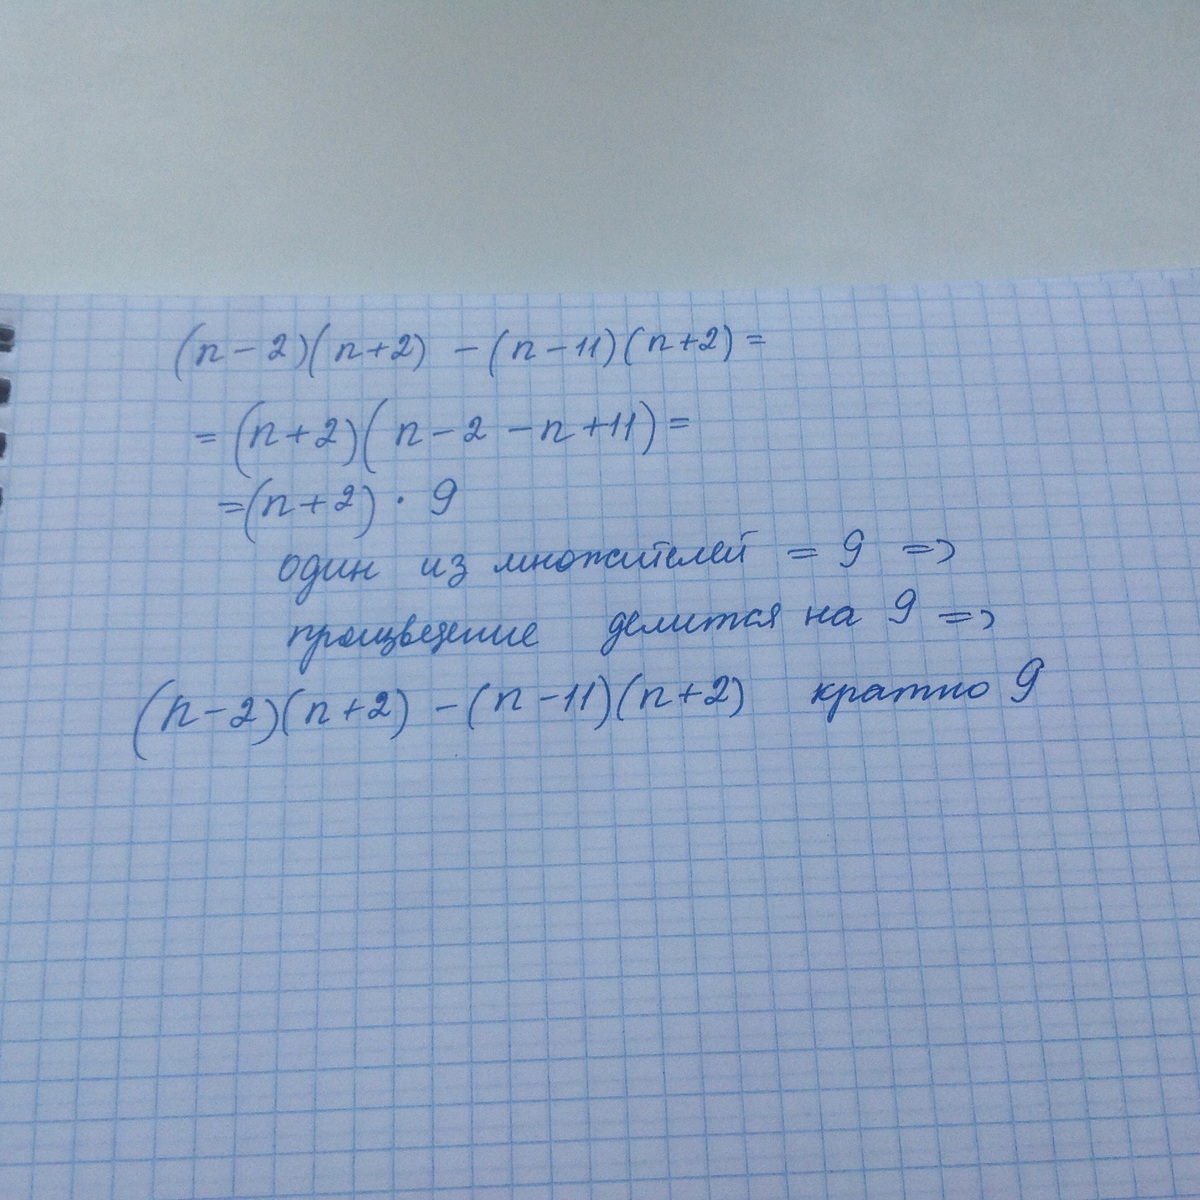 (n-2)(n+2) -(n-11)(n+2)=
=(n+2)(n-2-n+11)=
=(n+2)·9
один из множителей = 9 =>
произведение делится на 9 =>
(n-2)(n+2) -(n-11)(n+2) кратно 9